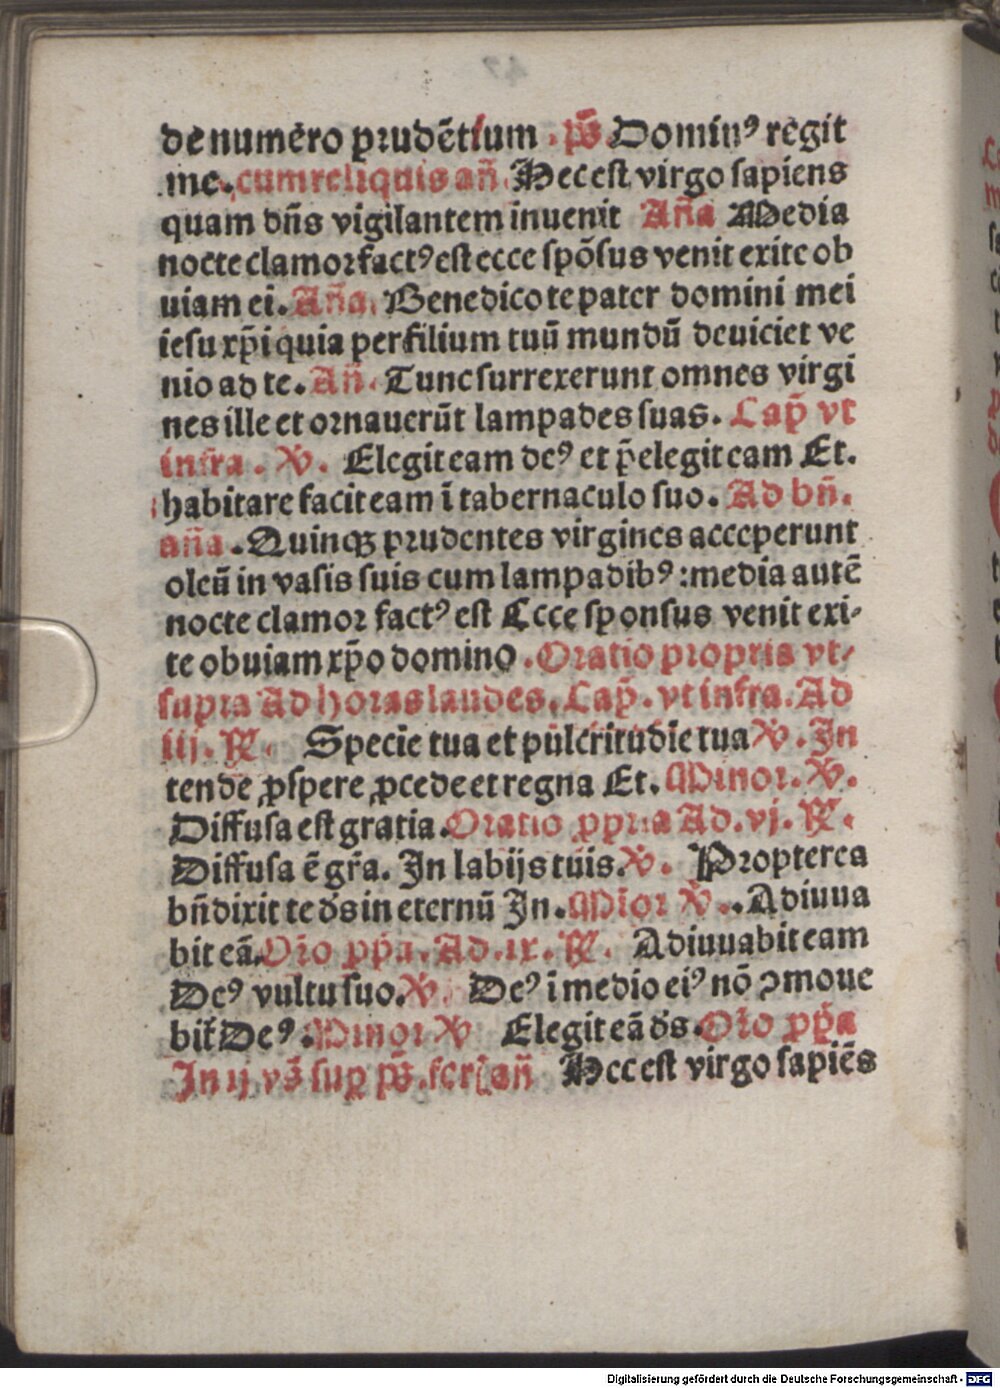 de numero prudēt&#x69;um . pš Domin⁹ regit
me. cum reliquis añ. Hec est virgo sapiens
quam dñs vigilantem inuenit Aña Media
nocte clamor fact⁹ est ecce spōsus venit exite ob
uiam ei. Aña. Benedico te pater domini mei
iesu xp̄i quia per filium tuū mundū deuiciet ve
nio ad te. Añ. Tunc surrexerunt omnes virgi
nes ille et ornauerūt lampades suas. Cap̄ vt
infra. ℣. Elegit eam de⁹ et p̄elegit eam Et.
habitare facit eam ī tabernaculo suo. Ad bñ.
aña. Quinqꝫ prudentes virgines acceperunt
oleū in vasis suis cum lampadib⁹ : media autē
nocte clamor fact⁹ est Ecce sponsus venit exi-
te obuiam xp̄o domino. Oratio propria vt/
supra Ad horas laudes. Cap̄. vt infra. Ad
iij. ℟. Specie tua et pulcritudīe tua ℣. In
tende ꝓspere ꝓcede et regna Et. Minor. ℣.
Diffusa est gratia. Oratio ꝓpria Ad. vj. ℟.
Diffusa ē gr̄a. In labijs tuis. ℣. Propterea
bñdixit te ds in eternū In. Mīor ℣.. Adiuua
bit eā. Or̄o ꝓp̄a. Ad. ix. ℟. Adiuuabit eam
De⁹ vultu suo. ℣. De⁹ ī medio ei⁹ nō ↄmoue
bit̄ De⁹. Minor ℣ Elegit eā ds. Or̄o ꝓp̄a
In ij vš sup̱ pš. feri. añ Hec est virgo sapiēs
Digitalisierung gefördert durch die Deutsche Forschungsgemeinschaft - DFG